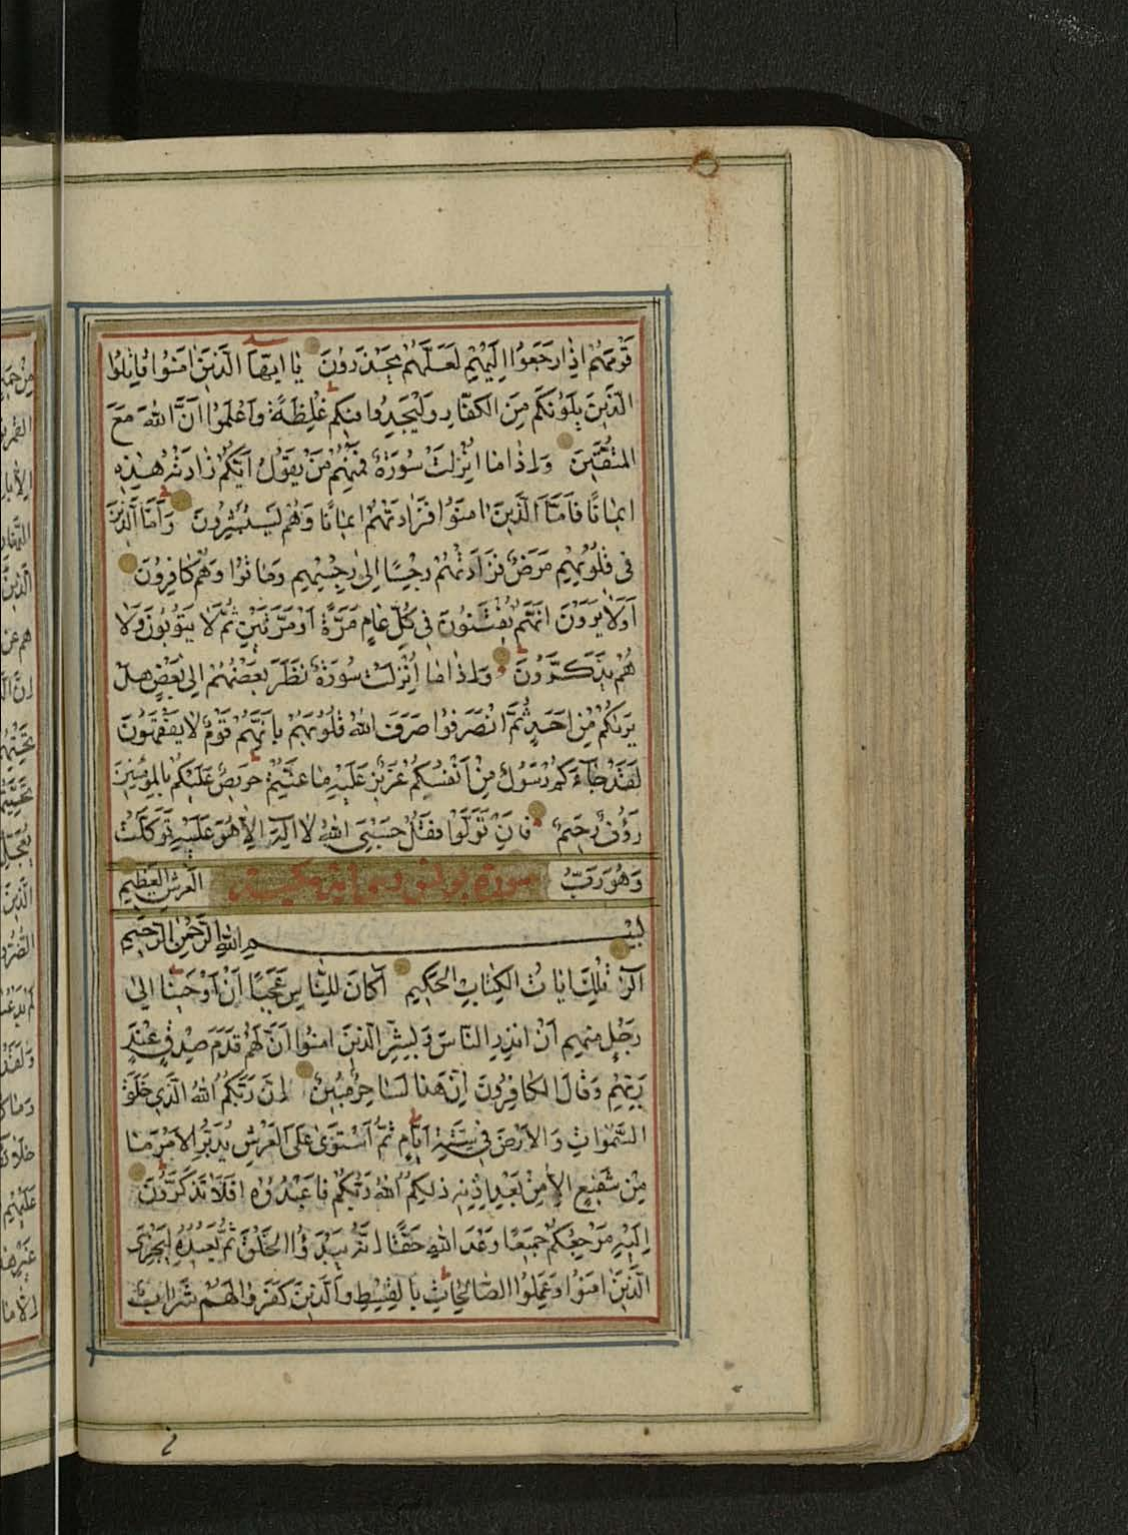 قَوْمَهُمْ اِذٰا رَجَعُوا اِلَيْهِمْ لَعَلَّهُمْ يَحْذَرُونَ يٰا اَيُّهَا الَّذينَ اٰمَنُوا قٰاتِلُوا
الَّذينَ يَلُونَكُمْ مِنَ الْكُفّٰارِ وَلْيَجِدُوا فيكُمْ غِلْظَةً وَاعْلَمُوا اَنَّ اللّٰهَ مَعَ
الْمُتَّقينَ وَاِذٰا مٰا اُنْزِلَتْ سُورَةٌ فَمِنْهُمْ مَنْ يَقُولُ اَيُّكُمْ زٰادَتْهُ هٰذِهِ
ايمٰانًا فَاَمَّا الَّذينَ اٰمَنُوا فَزٰادَتْهُمْ ايمٰانًا وَهُمْ يَسْتَبْشِرُونَ وَاَمَّا الَّذينَ
فى قُلُوبِهِمْ مَرَضٌ فَزٰادَتْهُمْ رِجْسًا اِلىٰ رِجْسِهِمْ وَمٰاتُوا وَهُمْ كٰافِرُونَ
اَوَلٰا يَرَوْنَ اَنَّهُمْ يُفْتَنُونَ فى كُلِّ عٰامٍ مَرَّةً اَوْ مَرَّتَيْنِ ثُمَّ لٰا يَتُوبُونَ وَلٰا
هُمْ يَذَّكَّرُونَ وَاِذٰا مٰا اُنْزِلَتْ سُورَةٌ نَظَرَ بَعْضُهُمْ اِلىٰ بَعْضٍ هَلْ
يَرٰيكُمْ مِنْ اَحَدٍ ثُمَّ انْصَرَفُوا صَرَفَ اللّٰهُ قُلُوبَهُمْ بِاَنَّهُمْ قَوْمٌ لٰا يَفْقَهُونَ
لَقَدْ جٰاءَكُمْ رَسُولٌ مِنْ اَنْفُسِكُمْ عَزيزٌ عَلَيْهِ مٰا عَنِتُّمْ حَريصٌ عَلَيْكُمْ بِالْمُؤْمِنينَ
رَؤُفٌ رَحيمٌ فَاِنْ تَوَلَّوْا فَقُلْ حَسْبِىَ اللّٰهُ لٰا اِلٰهَ اِلّٰا هُوَ عَلَيْهِ تَوَكَّلْتُ
وَهُوَ رَبُّ سورة يونس الْعَرْشِ الْعَظيمِ
بِسْمِ اللّٰهِ الرَّحْمٰنِ الرَّحيمِ
الٓرٰ تِلْكَ اٰيٰاتُ الْكِتٰابِ الْحَكيمِ اَكٰانَ لِلنّٰاسِ عَجَبًا اَنْ اَوْحَيْنٰا اِلىٰ
رَجُلٍ مِنْهُمْ اَنْ اَنْذِرِ النّٰاسَ وَبَشِّرِ الَّذينَ اٰمَنُوا اَنَّ لَهُمْ قَدَمَ صِدْقٍ عِنْدَ
رَبِّهِمْ وَقٰالَ الْكٰافِرُونَ اِنَّ هٰذٰا لَسٰاحِرٌ مُبينٌ اِنَّ رَبَّكُمُ اللّٰهُ الَّذى خَلَقَ
السَّمٰوٰاتِ وَالْاَرْضَ فى سِتَّةِ اَيّٰامٍ ثُمَّ اسْتَوىٰ عَلَى الْعَرْشِ يُدَبِّرُ الْاَمْرَ مٰا
مِنْ شَفيعٍ اِلّٰا مِنْ بَعْدِ اِذْنِهِ ذٰلِكُمُ اللّٰهُ رَبُّكُمْ فَاعْبُدُوهُ اَفَلٰا تَذَكَّرُونَ
اِلَيْهِ مَرْجِعُكُمْ جَميعًا وَعْدَ اللّٰهِ حَقًّا اِنَّهُ يَبْدَؤُا الْخَلْقَ ثُمَّ يُعيدُهُ لِيَجْزِىَ
الَّذينَ اٰمَنُوا وَعَمِلُوا الصّٰالِحٰاتِ بِالْقِسْطِ وَالَّذينَ كَفَرُوا لَهُمْ شَرٰابٌ